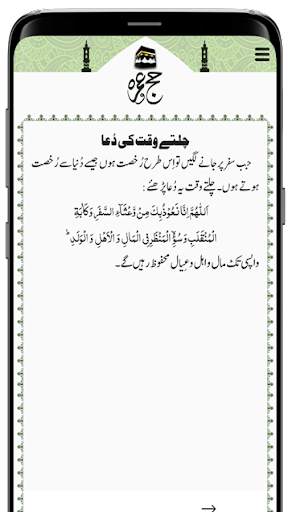 حج و عمرہ
چلتے وقت کی دُعا
جب سفر پر جانے لگیں تو اِس طرح رُخصت ہوں جیسے دُنیا سے رُخصت
ہوتے ہوں۔ چلتے وقت یہ دُعا پڑھئے:
اَللّٰھُمَّ اِنَّا نَعُوْذُبِکَ مِنْ وَّعْثَآءِ السَّفَرِ وَکَاٰبَۃِ
الْمُنْقَلَبِ وَسُوْٓءِ الْمَنْظَرِ فِی الْمَالِ وَ الْاَھْلِ وَ الْوَلَدِ ؕ
واپسی تک مال و اہل و عِیال محفوظ رہیں گے۔